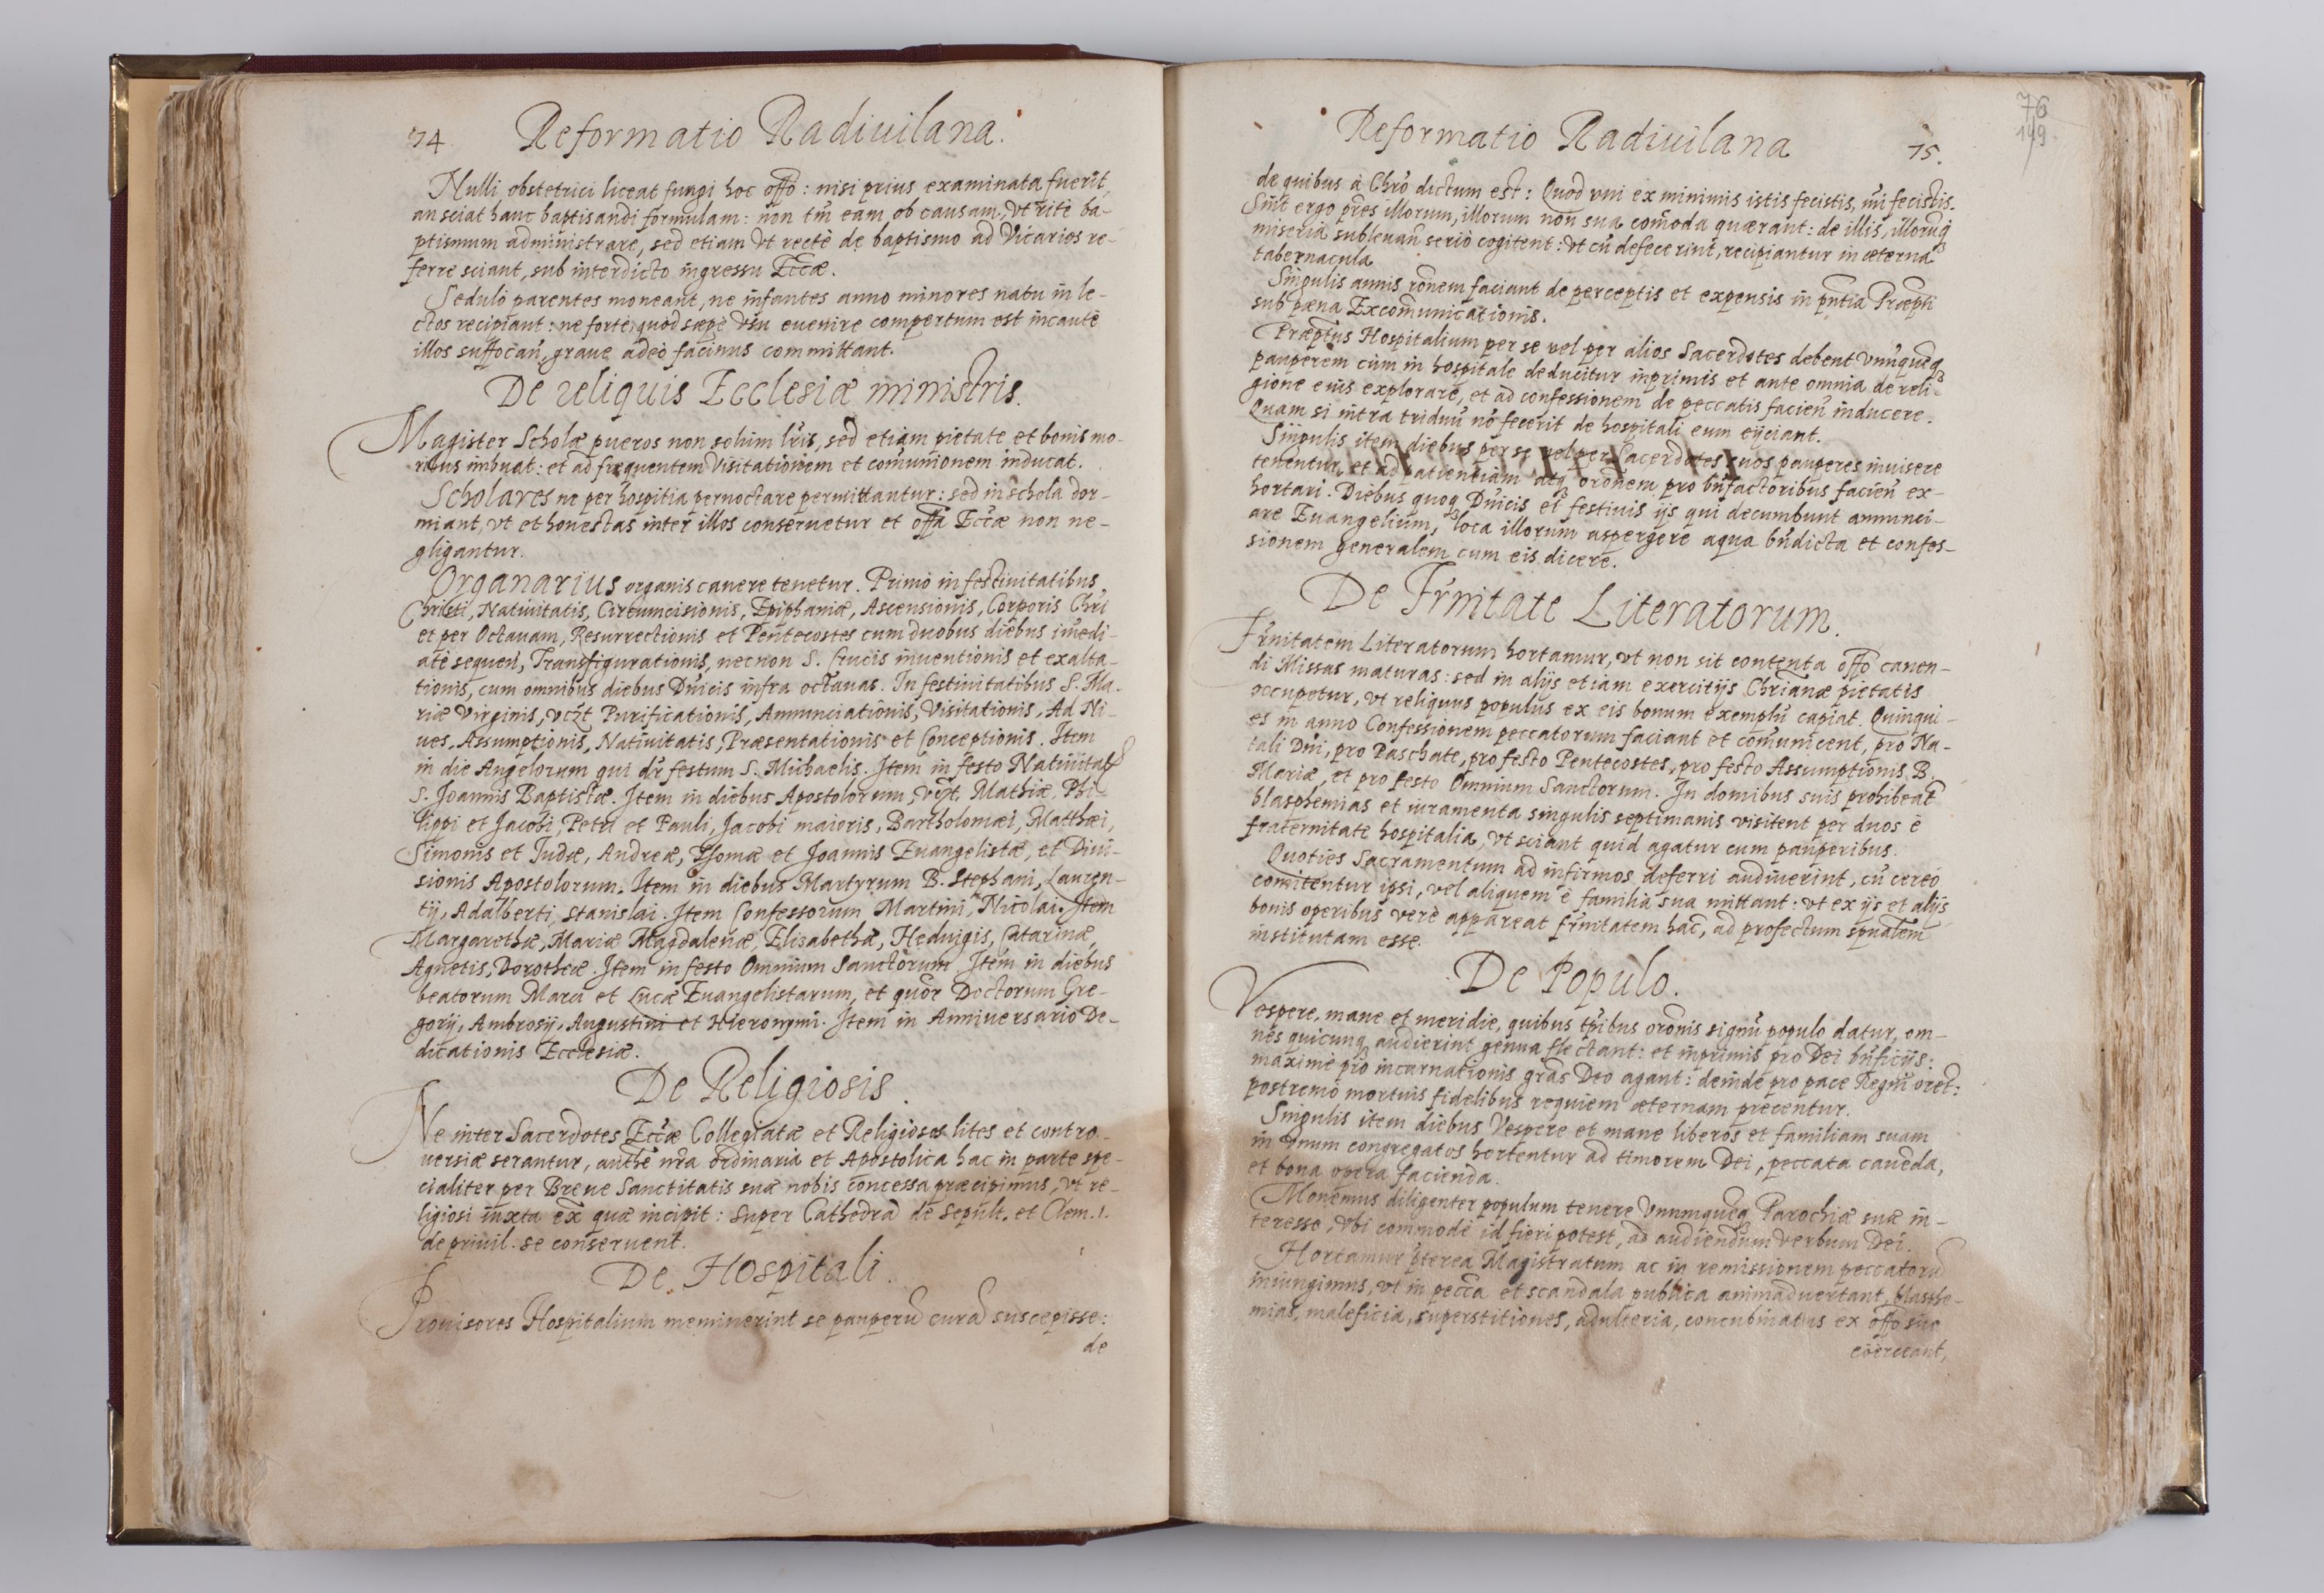 74. Reformatio Radiuilana.
Nulli obstetrici liceat fungi hoc offo: nisi prius examinata fuerit,
an sciat hanc baptisandi formulam: non tm̃ eam ob causam, vt ritè ba-
ptismum administrare, sed etiam vt rectè de baptismo ad Vicarios re-
ferre sciant, sub interdicto ingressu Eccæ.
Sedulò parentes moneant, ne infantes anno minores natu in le-
ctos recipiant: ne fortè, quod sæpè vsu euenire compertum est incautè
illos suffocañ, graue adeò facinus committant.
De reliquis Ecclesiæ ministris.
Magister Scholæ pueros non solùm lr̃is, sed etiam pietate et bonis mo-
ribus imbuat: et ad frequentem visitationem et com̃unionem inducat.
Scholares ne per hospitia pernoctare permittantur: sed in schola dor-
miant, vt et honestas inter illos conseruetur et offa Eccæ non ne-
gligantur.
Organarius organis canere tenetur. Primò in festiuitatibus
Christi, Natiuitatis, Circumcisionis, Epiphaniæ, Ascensionis, Corporis Chrĩ
et per Octauam, Resurrectionis et Pentecostes cum duobus diebus im̃edi-
atè sequeñ, Transfigurationis, necnon S. Crucis inuentionis et exalta-
tionis, cum omnibus diebus Dñicis infra octauas. In festiuitatibus S. Ma-
riæ Virginis, vczt Purificationis, Annunciationis, Visitationis, Ad Ni-
ues, Assumptionis, Natiuitatis, Præsentationis et Conceptionis. Item
in die Angelorum qui dr̃ festum S. Michaelis. Item in festo Natiuitatꝭ
S. Joannis Baptistæ. Item in diebus Apostolorum, vczt. Mathiæ, Phi-
lippi et Jacobi, Petri et Pauli, Jacobi maioris, Bartholomæi, Matthæi,
Simonis et Judæ, Andreæ, Thomæ et Joannis Euangelistæ, et Diui-
sionis Apostolorum. Item in diebus Martyrum B. Stephani, Lauren-
tij, Adalberti, Stanislai. Item Confessorum Martini, Nicolai. Item
Margarethæ, Mariæ Magdalenæ, Elisabethæ, Heduigis, Catarinæ,
Agnetis, Dorotheæ. Item in festo Omnium Sanctorum Item in diebus
beatorum Marci et Lucæ Euangelistarum, et quõr Doctorum Gre-
gorij, Ambrosij, Augustini et Hieronymi. Item in Anniuersario De-
dicationis Ecclesiæ.
De Religiosis.
Ne inter Sacerdotes Eccæ Collegiatæ et Religiosos lites et contro-
uersiæ serantur, authẽ nr̃a ordinaria et Apostolica hac in parte spe-
cialiter per Breue Sanctitatis suæ nobis concessa præcipimus, vt re-
ligiosi iuxta ex̃ quæ incipit: Super Cathedrã de sepult. et Clem. 1.
de priuil. se conseruent.
De Hospitali.
Prouisores Hospitalium meminerint se pauperũ curã suscepisse:
de
76
149
Reformatio Radiuilana 75.
de quibus à Chrõ dictum est: Quod vni ex minimis istis fecistis, m̃i fecistis.
Sint ergo pr̃es illorum, illorum non sua com̃oda quærant: de illis, illorumqꝫ
miseria subleuañ seriò cogitent: vt cũ defecerint, recipiantur in æterna
tabernacula
Singulis annis rõnem faciant de perceptis et expensis in pñtia Præpti
sub pæna Excom̃unicationis.
Præptus Hospitalium per se vel per alios Sacerdotes debent vnũquẽqꝫ
pauperem cùm in hospitale deducitur inprimis et ante omnia de reli-
gione eius explorare, et ad confessionem de peccatis facieñ inducere.
Quam si intra triduũ nõ fecerit de hospitali eum eijciant.
Singulis item diebus per se vel per Sacerdotes suos pauperes inuisere
tenentur, et ad patientiam atqꝫ orõnem pro bñfactoribus facieñ ex-
hortari. Diebus quoqꝫ Dñicis et festiuis ijs qui decumbunt annunci-
are Euangelium, loca illorum aspergere aqua bñdicta et confes-
sionem generalem cum eis dicere.
De Fr̃nitate Literatorum.
Fr̃nitatem Literatorum hortamur, vt non sit contenta offo canen-
di Missas maturas: sed in alijs etiam exercitijs Chriãnæ pietatis
occupetur, vt reliquus populus ex eis bonum exemplũ capiat. Quinqui-
es in anno Confessionem peccatorum faciant et com̃unicent, pro Na-
tali Dñi, pro Paschate, pro festo Pentecostes, pro festo Assumptionis B.
Mariæ, et pro festo Omnium Sanctorum. In domibus suis prohibeãt
blasphemias et iuramenta singulis septimanis visitent per duos è
fraternitate hospitalia, vt sciant quid agatur cum pauperibus.
Quoties Sacramentum ad infirmos deferri audiuerint, cũ cereo
comitentur ipsi, vel aliquem è familia sua mittant: vt ex ijs et alijs
bonis operibus verè appareat fr̃nitatem hãc, ad profectum spũalem
institutam esse.
De Populo.
Vespere, mane et meridie, quibus tp̃ibus orõnis signũ populo datur, om-
nes quicunqꝫ audierint genua flectant: et inprimis pro Dei bñficijs:
maximè pro incarnationis grãs Deo agant: deinde pro pace Regni orẽt:
postremò mortuis fidelibus requiem æternam precentur.
Singulis item diebus Vespere et mane liberos et familiam suam
in vnum congregatos hortentur ad timorem Dei, peccata cauẽda,
et bona opera facienda.
Monemus diligenter populum tenere vnumquẽqꝫ Parochiæ suæ in-
teresse, vbi commodè id fieri potest, ad audiendum verbum Dei.
Hortamur p̃terea Magistratum ac in remissionem peccatorũ
iniungimus, vt in pecc̃a et scandala publica animaduertant, blasphe-
mias, maleficia, superstitiones, adulteria, concubinatus ex offo suo
coërceant,